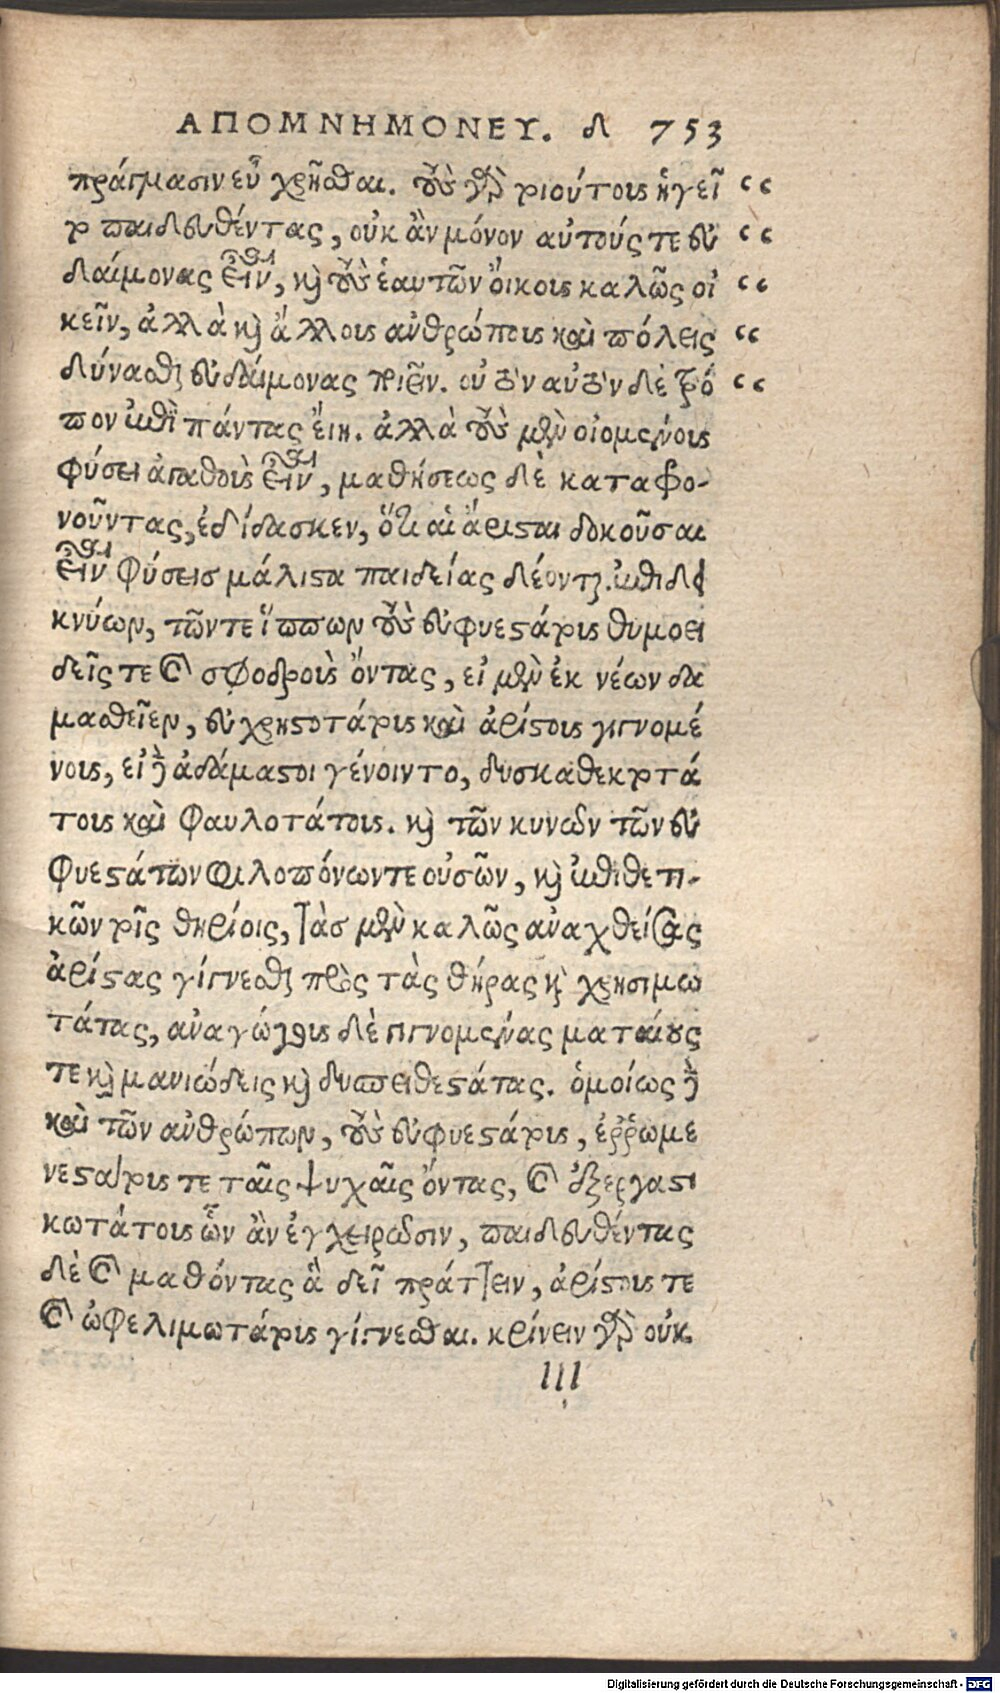 ΑΠΟΜΝΗΜΟΝΕΥ. δ 753
πράγμασιν εὖ χρῆσθαι. τοὺς γὰρ τοιούτους ἡγεῖ “
το παιδευθέντας, οὐκ ἂν μόνον αὐτούς τε εὐ “
δαίμονας εἶναι, καὶ τοὺς ἑαυτῶν οἴκους καλῶς οἰ “
κεῖν, ἀλλὰ καὶ ἄλλους ἀνθρώπους καὶ πόλεις “
δύνασθαι εὐδαίμονας ποιεῖν. οὐ τὸν αὐτὸν δὲ τρό “
πον ἐπὶ πάντας ἤει. ἀλλὰ τοὺς μὲν οἰομένους
φύσει ἀγαθοὺς εἶναι, μαθήσεως δὲ καταφρο-
νοῦντας, ἐδίδασκεν, ὅτι αἱ ἄρισται δοκοῦσαι
εἶναι φύσεις μάλιστα παιδείας δέονται. ἐπιδει
κνύων, τῶν τε ἵππων τοὺς εὐφυεστάτους θυμοει
δεῖς τε καὶ σφοδροὺς ὄντας, εἰ μὲν ἐκ νέων δα
μασθεῖεν, εὐχρηστοτάτους καὶ ἀρίστους γιγνομέ
νους, εἰ δὲ ἀδάμαστοι γένοιντο, δυσκαθεκτοτά
τους καὶ φαυλοτάτους. καὶ τῶν κυνῶν τῶν εὐ
φυεστάτων φιλοπόνων τε οὐσῶν, καὶ ἐπιθετι-
κῶν τοῖς θηρίοις, τὰς μὲν καλῶς ἀναχθείσας
ἀρίστας γίγνεσθαι πρὸς τὰς θήρας καὶ χρησιμω
τάτας, ἀναγώγους δὲ γιγνομένας ματαίους
τε καὶ μανιώδεις καὶ δυσπειθεστάτας. ὁμοίως δὲ
καὶ τῶν ἀνθρώπων, τοὺς εὐφυεστάτους, ἐρῥωμε
νεστάτους τε ταῖς ψυχαῖς ὄντας, καὶ ἐξεργαστι
κωτάτους ὧν ἂν ἐγχειρῶσιν, παιδευθέντας
δὲ καὶ μαθόντας ἃ δεῖ πράττειν, ἀρίστους τε
καὶ ὠφελιμωτάτους γίγνεσθαι. κρίνειν γὰρ οὐκ
lll
Digitalisierung gefördert durch die Deutsche Forschungsgemeinschaft - DFG